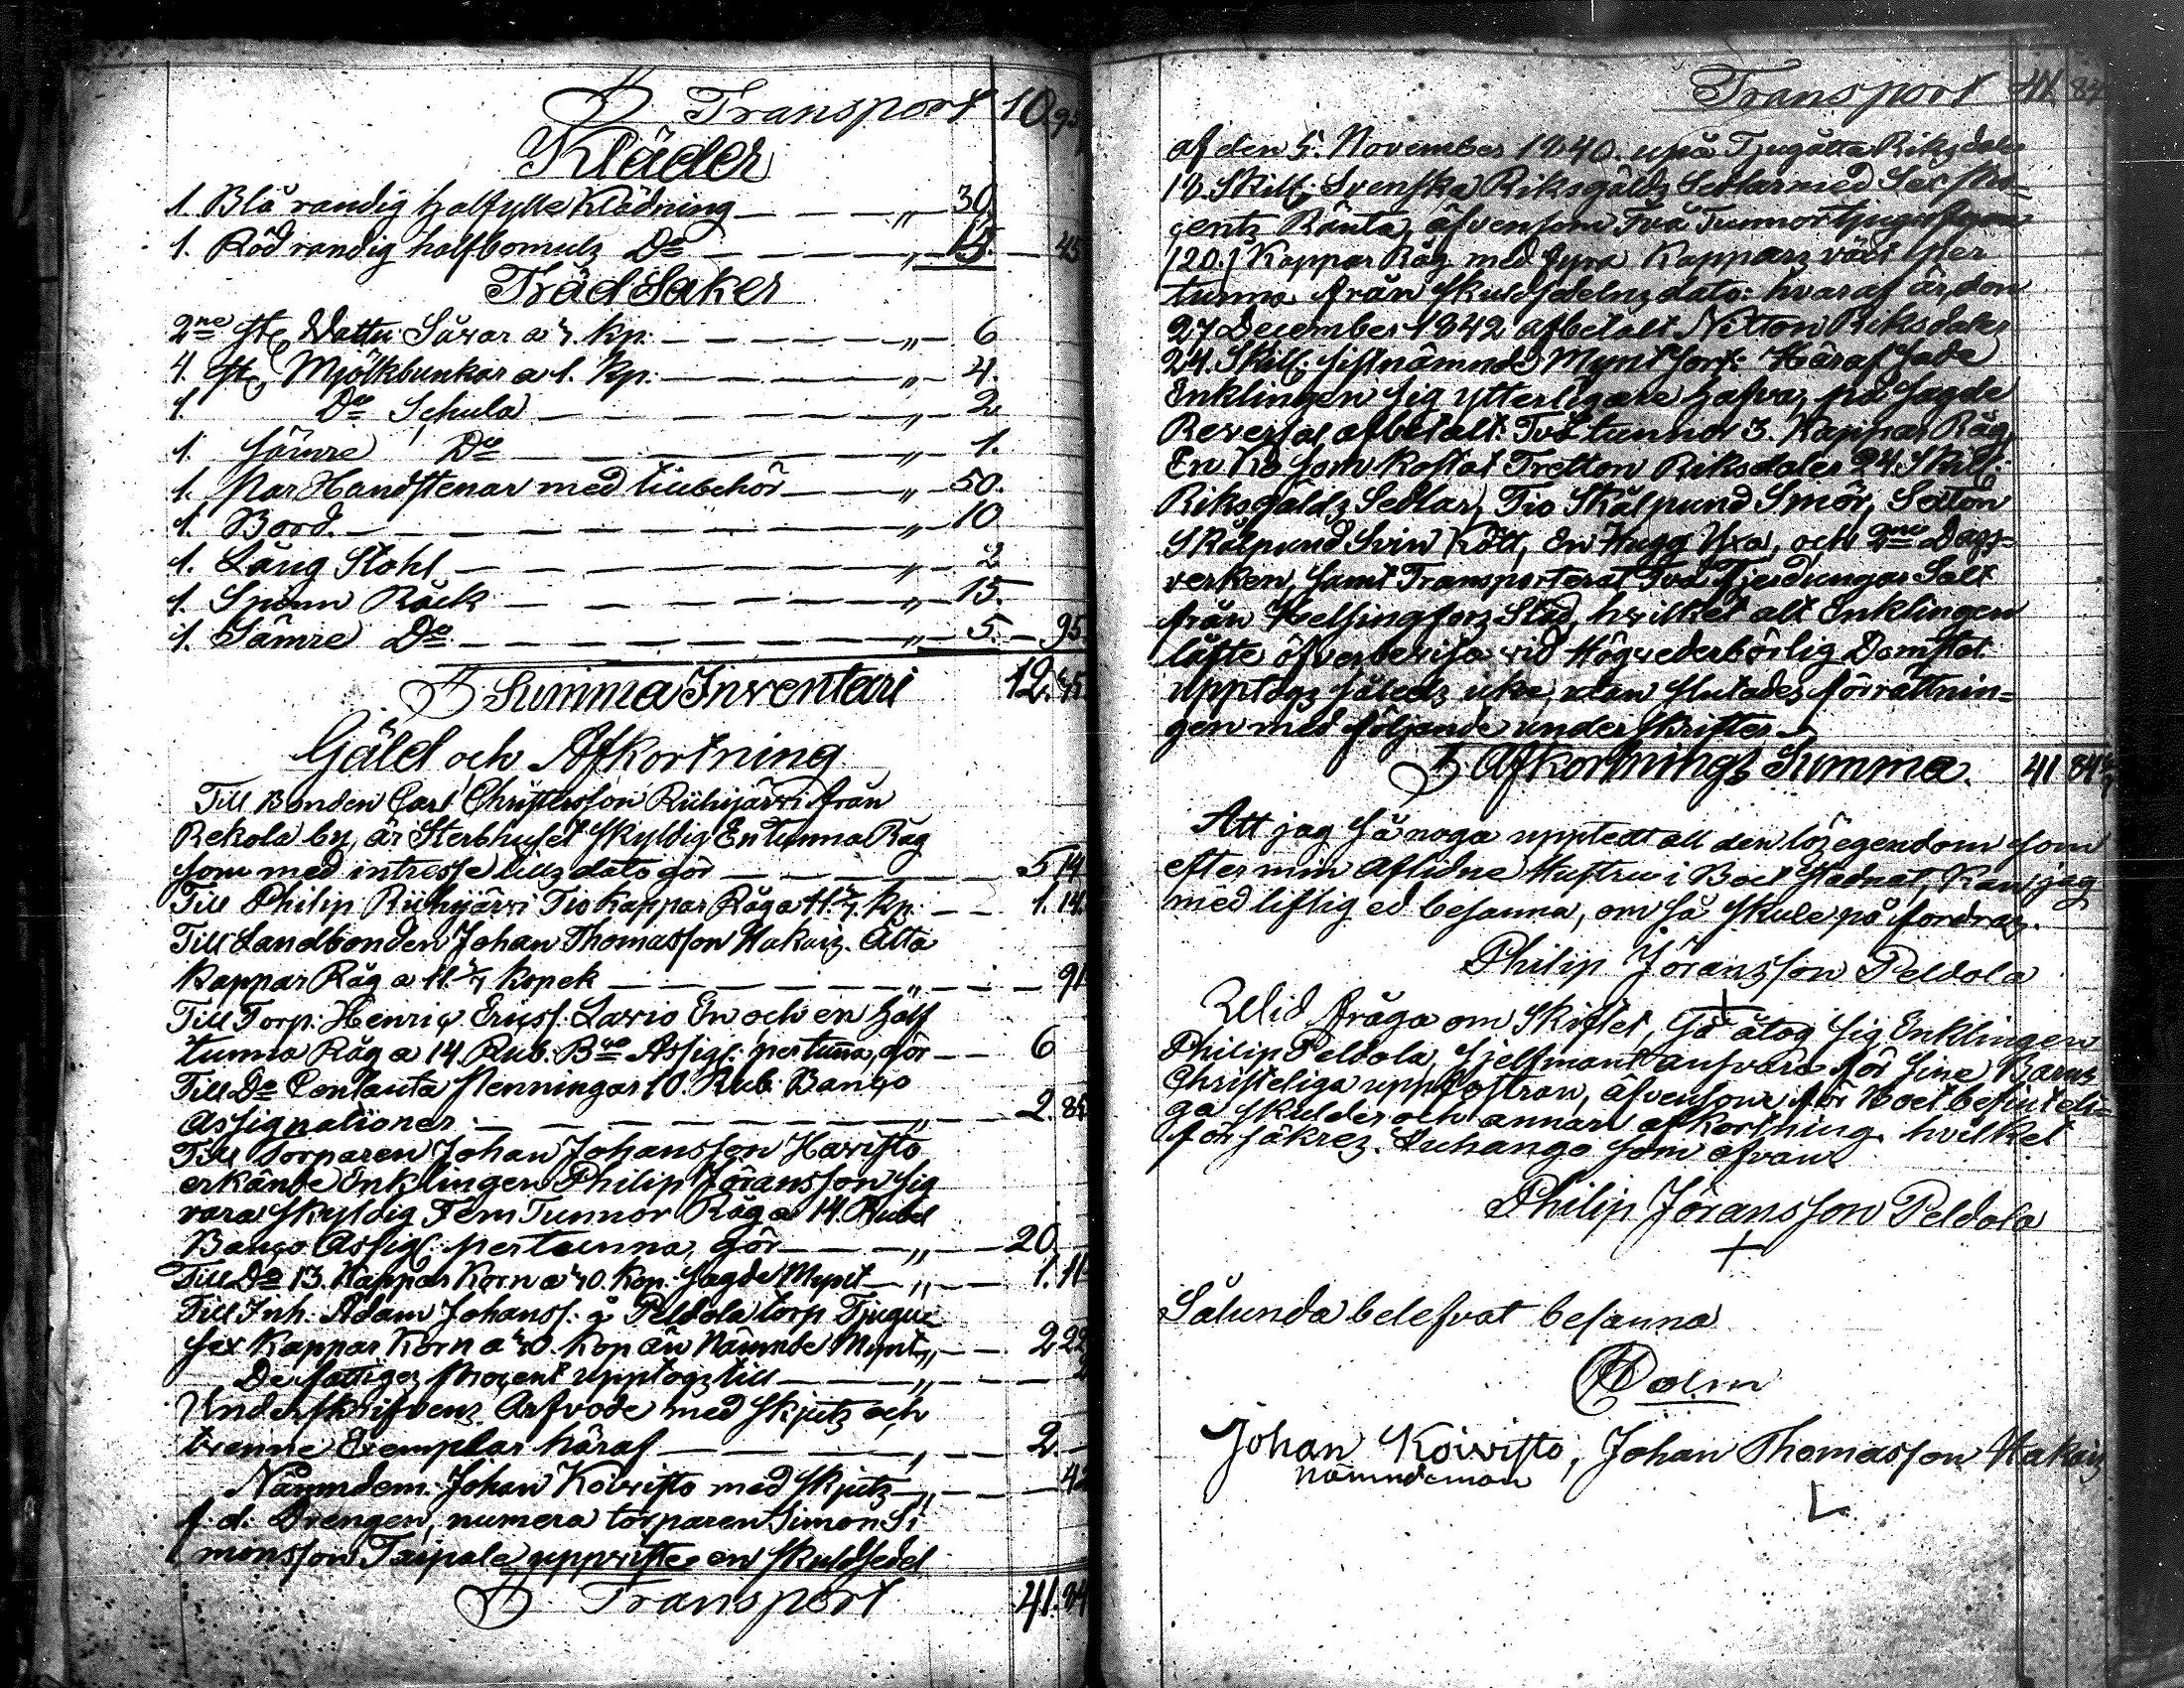 Transport 10.95
Kläder
1. Blå randig halfylle Klädning — — „ — 30.
1. Röd randig halfbomulz Do — — — „ — 15. — 45
Träd Saker
2ne st: Wattu Såxar a 3. kp: — — — — — „ — 6
4. st: Mjölkbunkar a 1. kp: — — — — „ — 4.
1. Do Schula — — — — — „ — 2
1. Sämre Do — — — — — „ — 1.
1. Par Handstenar med tillbehör — — „ — 50.
1. Bord. — — — — — — — „ — 10
1. Lång Stohl — — — — — — „ — 2
1. Spinn Råck — — — — — „ — 15.
1. Sämre Do — — — — — — „ — 5. — 95.
Summa Inventari 12.
Gäld och Afkortning
Till Bonden Carl Christersson Riihijärvi från
Rekola by, är Sterbhuset skyldig En tunna Råg
som med intresse tills dato gör — — — 5 14
Till Philip Riihijärvi Tio Kappar Råg a 11. 3/7. kp: — — 1. 14.
Till Landbonden Johan Thomasson Hakais. Åtta
Kappar Råg a 11. 3/7 kopek — — — — „ — — 91
Till Torp: Henric Ericss: Lavio En och en half
tunna Råg a 14. Rub: Bco Assig: per tunna, gör — — 6
Till Do Contanta Penningar 10. Rub. Banco
Assignationer — — — — — — „ — 2. 85
Till Torparen Johan Johansson Havisto
erkände Enklingen Philip Jöransson sig
vara skyldig Fem Tunnor Råg a 14. Rubel
Banco Assig: per tunna, gör — — — „ — 20.
Till Do 13. Kappar Korn a 30. kop: sagde Mynt — „ — 1. 11
Till Inh: Adam Johanss: å Peldola torp Tjugu
sex Kappar Korn a 30. kop än Nämnde Mynt „ — 2 22
De fattigas Procent upptogs till — — — „ — — 2
Underskrifvens Arfvode med skjuts och
trenne Exemplar häraf — — — — „ — 2. —
Nämndem: Johan Koivisto med skjuts — „ — — 42
f: d: Drengen, numera torparen Simon Si
monsson Taipale uppviste en skuldsedel
Transport 41. 84
Transport 41. 84
af den 5. November 1840. uppå Tjugåtta Riksdaler
18 Skill: Svenska Riksgäldz Sedlar med Sex pro-
centz Ränta, äfvensom Två Tunnor tjugu
(20.) Kappar Råg med fyra Kappars växt per
tunna från skuldsedelns dato: hvaraf är den
27 December 1842 afbetalt Nitton Riksdaler
24. Skill: sistnämnde Mynt sort: Häraf sade
Enklingen sig ytterligare hafva, på sagde
Reversal, afbetalt: Två tunnor 3. Kappar Råg,
En Ko som kostat Tretton Riksdaler 24. Skill:
Riksgäldz Sedlar, Tio Skålpund Smör, Sexton
Skålpund Svin Kött, En Hugg Yxa, och 2ne Dags-
verken, samt Transporterat Två Fjerdungar Salt
från Helsingfors Stad, hvilket alt Enklingen
låfte öfverbevisa vid Högvederbörlig Domstol
upptogs således icke, utan slutades förrättnin-
gen med följande underskrifter.
Afkortnings Summa. 41 84
Att jag så noga upptedt all den lösegendom som
efter min Aflidne Hustru i Boet stadnat, kan jag
med liflig ed besanna, om så skule på fordras.
Philip Jöransson Peldola
+
Wid fråga om Skiftet, så åtog sig Enklingen
Philip Peldola, sjelfmant ansvara för sine Barns
Christeliga uppfostran, äfvensom för Boet befinteli-
ga skulder och annan afkortning, hvilket
försäkrez. Luhango som ofvan
Philip Jöransson Peldola
+
Sålunda belefvat besanna
Holm
Johan Koivisto, Johan Thomasson Hakais
nämndeman